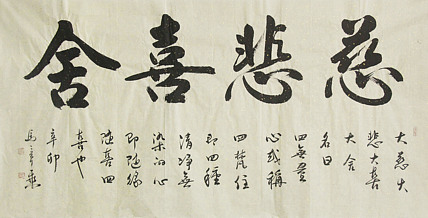 慈悲喜舍
大慈大
悲大喜
大舍
名曰
四無量
心或稱
四梵住
即四種
清净無
染的心
即随缘
随喜四
喜也
辛卯